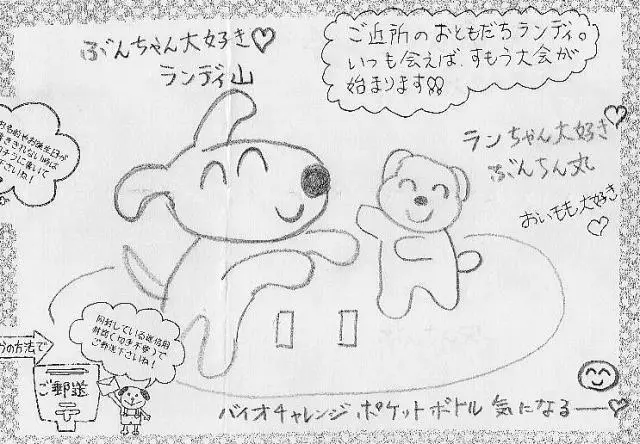 ぶんちゃん大好き♡
ランディ山
ご近所のおともだちランディ。
いつも会えば、すもう大会が
始まります!!
ランちゃん大好き♡
ぶんちん丸
おいもも大好き
♡
同封している返信用
封筒にて(切手不要)で
ご郵送下さいね!
の方法で
ご郵送
バイオチャレンジ ポケットボトル 気になる──♡